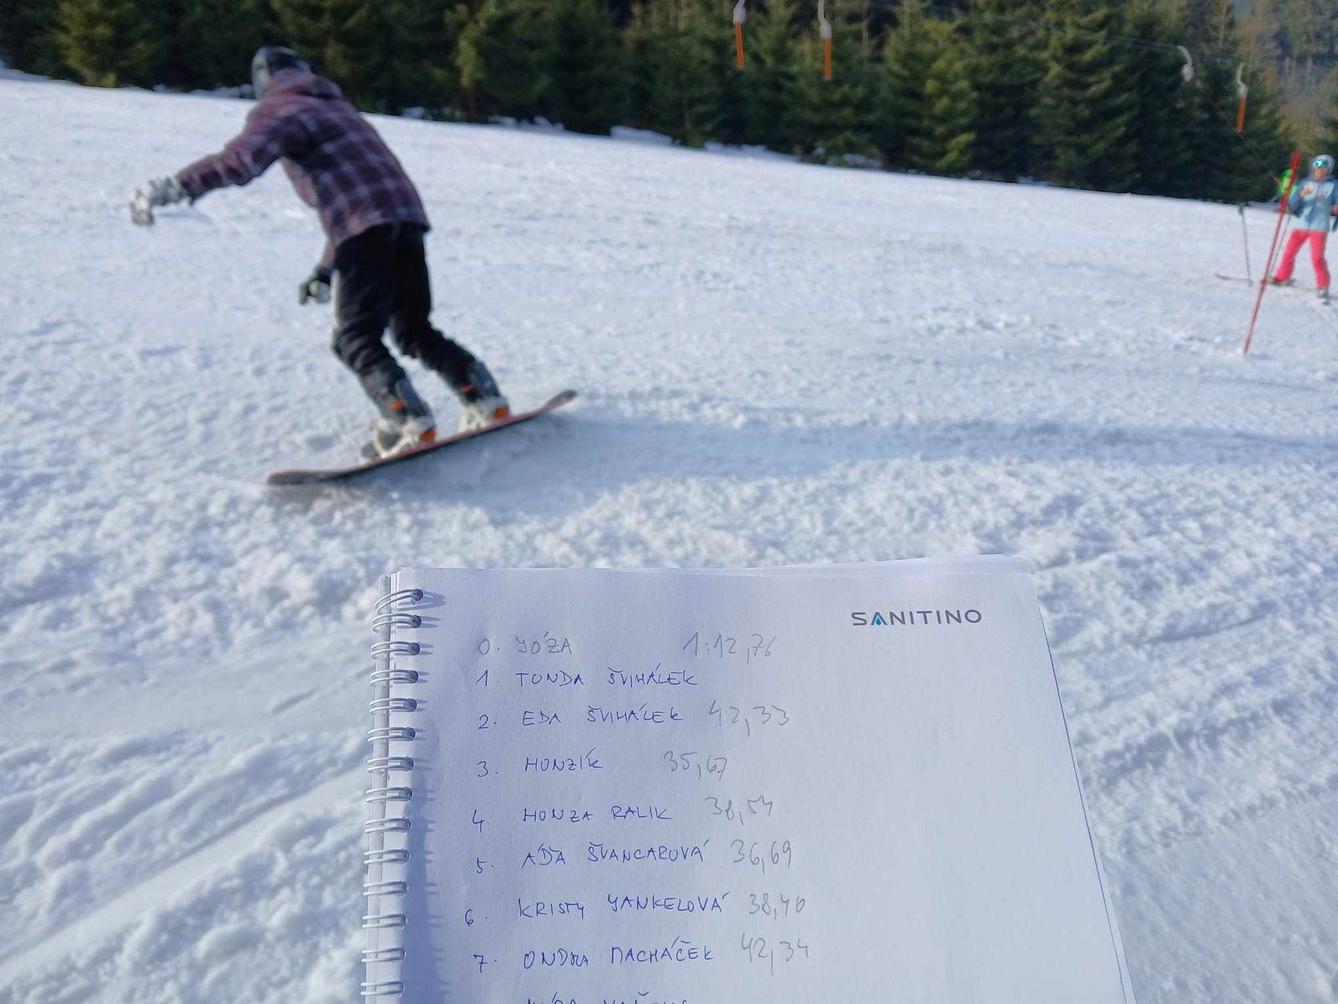 SANITINO
0. JÓZA 1:12,76
1. TONDA ŠVIHÁLEK
2. EDA ŠVIHÁLEK 42,33
3. HONZÍK 35,67
4. HONZA RALIK 38,54
5. ÁĎA ŠVANCAROVÁ 36,69
6. KRISTY JANKELOVÁ 38,40
7. ONDRA MACHÁČEK 42,34